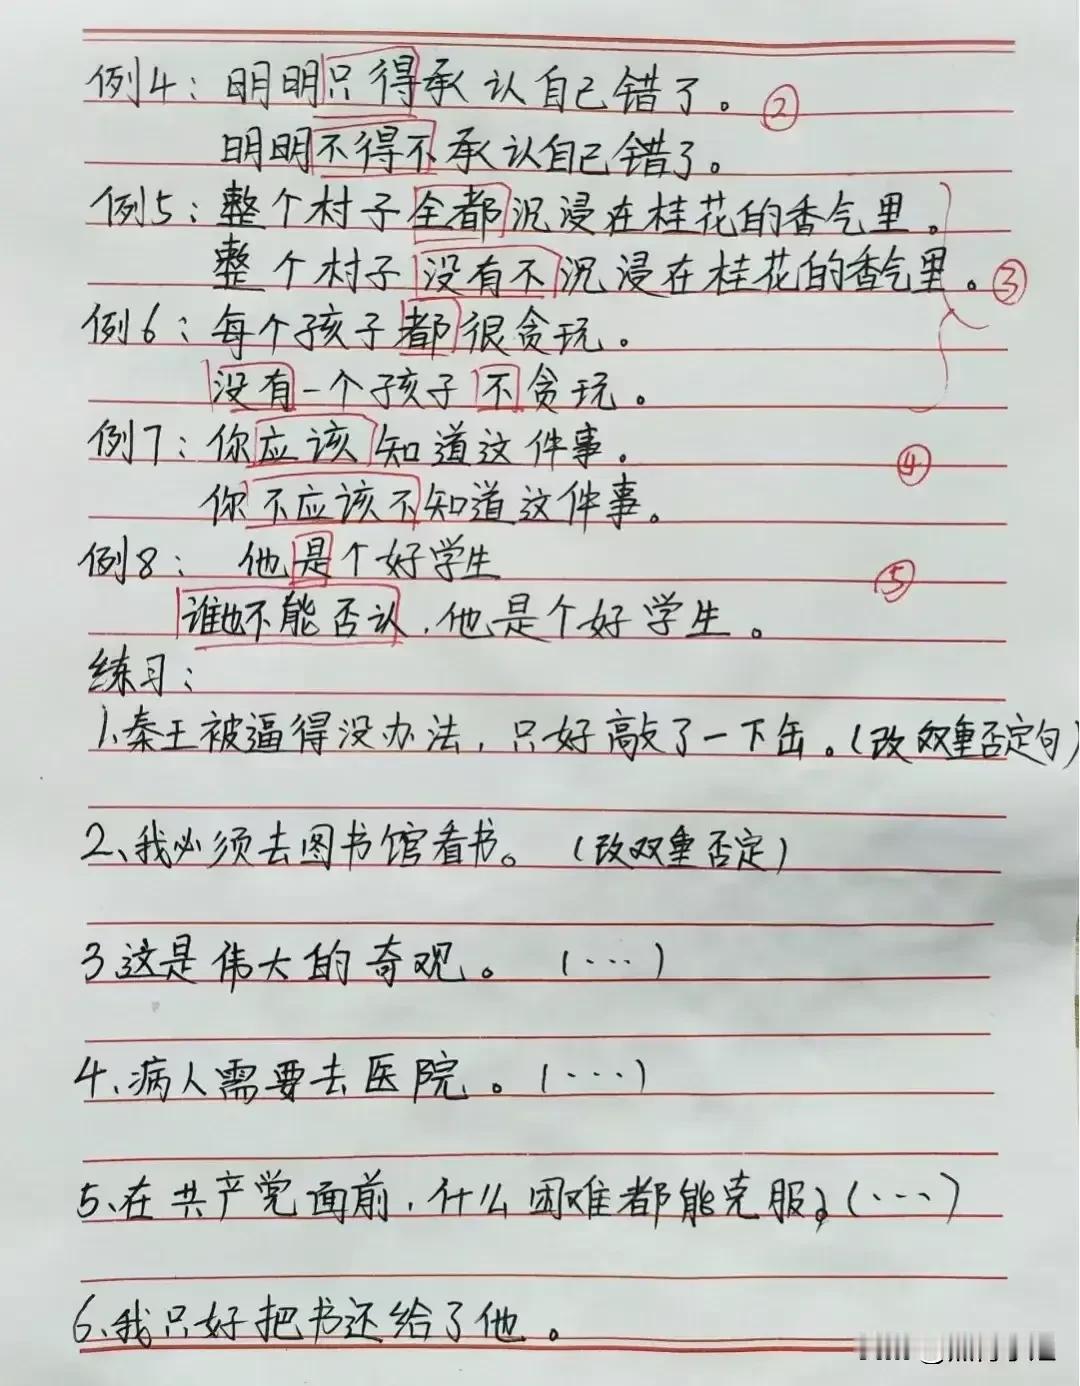 例4：明明只得承认自己错了。②
明明不得不承认自己错了。
例5：整个村子全都沉浸在桂花的香气里。
整个村子没有不沉浸在桂花的香气里。③
例6：每个孩子都很贪玩。
没有一个孩子不贪玩。
例7：你应该知道这件事。④
你不应该不知道这件事。
例8：他是个好学生⑤
谁也不能否认，他是个好学生。
练习：
1、秦王被逼得没办法，只好敲了一下缶。（改双重否定句）
2、我必须去图书馆看书。（改双重否定）
3这是伟大的奇观。（...）
4、病人需要去医院。（...）
5、在共产党面前，什么困难都能克服。（...）
6、我只好把书还给了他。